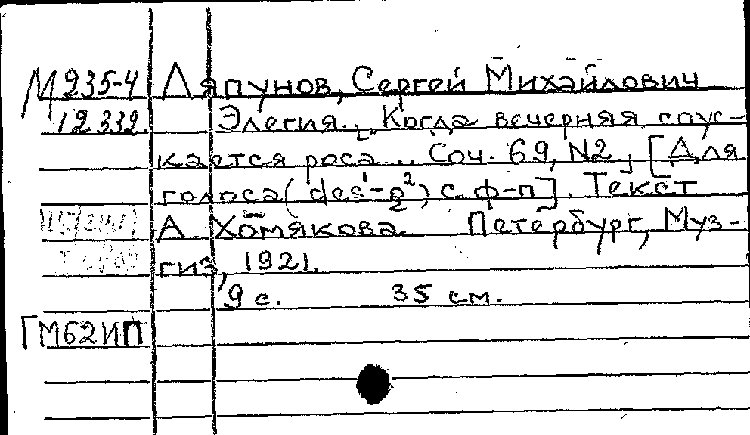 М235-4 Ляпунов, Сергей Михайлович
12 332. Элегия. „Когда вечерняя спус-
кается роса... Соч. 69, N2, [Для
голоса (des¹-g²) с ф-п]. Текст
А Хомякова. Петербург, Муз-
гиз, 1921.
9 с. 35 см.
ГМ62ИП